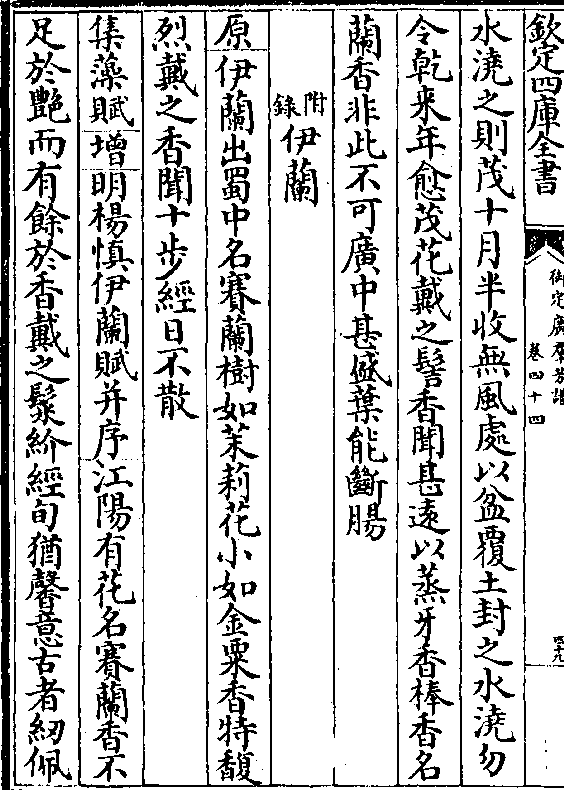 欽定四庫全書
御定廣羣芳譜
卷四十四
四十九
水澆之則茂十月半收無風處以盆覆土封之水澆勿
令乾來年愈茂花戴之髻香聞甚遠以蒸牙香棒香名
蘭香非此不可廣中甚盛葉能斷腸
附錄伊蘭
原伊蘭出蜀中名賽蘭樹如茉莉花小如金粟香特馥
烈戴之香聞十步經日不散
集藻賦增明楊慎伊蘭賦并序江陽有花名賽蘭香不
足於艷而有餘於香戴之髮紒經旬猶馨意古者紉佩